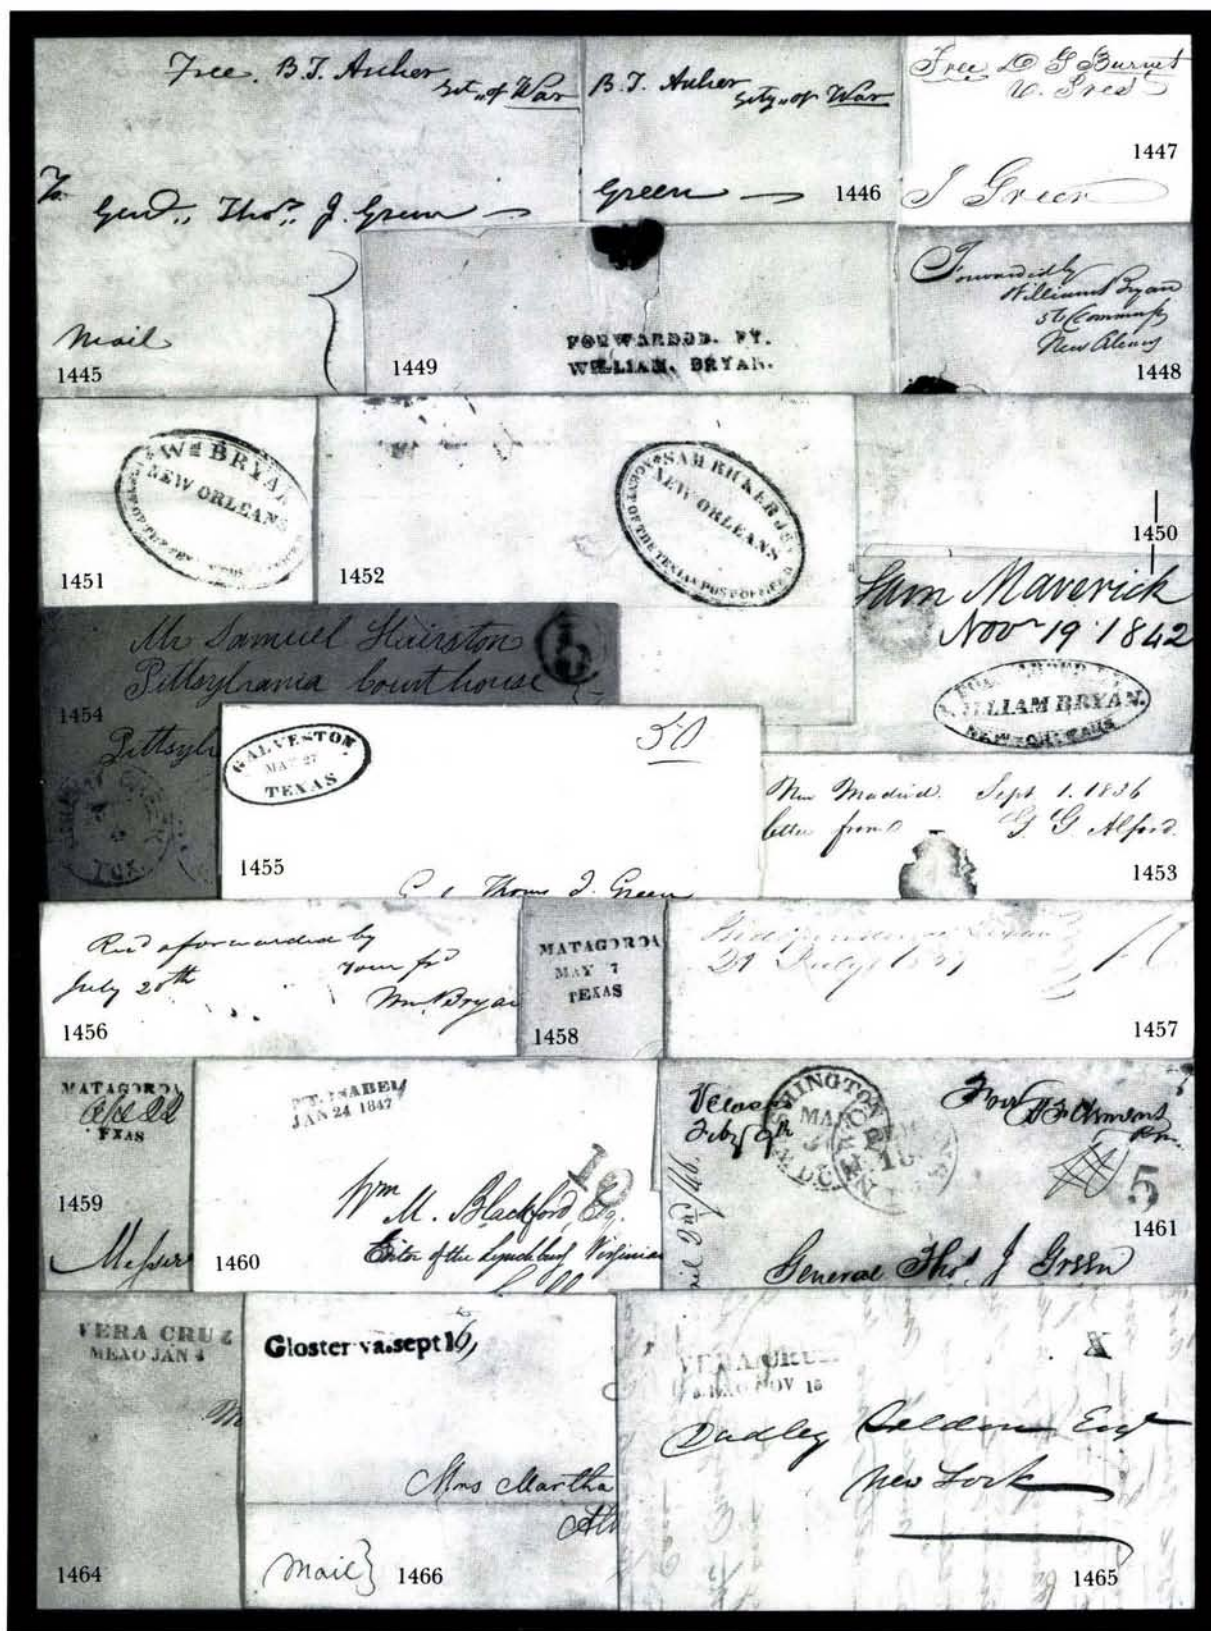 Free. B.T. Archer
Sety of War
To
Genl. Thos. J. Green
Mail
1445
B.T. Archer
Sety of War
Green
1446
Free D G Burnet
V. Presd
1447
J Green
FORWARDED. BY.
WILLIAM. BRYAN.
1449
Forwarded by
William Bryan
New Orleans
1448
Wm BRYAN
NEW ORLEANS
1451
SAM RICKER JR
NEW ORLEANS
AGENT OF THE TEXIAN POST OFFICE D
1452
1450
Sam Maverick
Nov 19 1842
WILLIAM BRYAN.
NEW ORLEANS
Mr Samuel Hairston
Pittsylvania Courthouse
5
1454
Pittsyl
TEX.
GALVESTON
MAY 27
TEXAS
50
1455
Thomas J. Green
New Madrid. Sept 1. 1836
letter from G G Alford.
1453
Recd & forwarded by
July 20th your fd
Wm Bryan
1456
MATAGORDA
MAY 7
TEXAS
1458
Independence Texas
1457
MATAGORDA
EXAS
1459
Messrs
PT. ISABEL
JAN 24 1847
10
Wm M. Blackford, Esq.
Editor of the Lynchburg Virginian
1460
Velasco
Feby 9th
WASHINGTON
D.C.
5
1461
General Thos J Green
VERA CRUZ
MEXO JAN 4
1464
Gloster va. sept 16,
Mrs Martha
Mail}
1466
VERA CRUZ
MEXO NOV 15
X
Dudley Selden Esqr
New York
1465